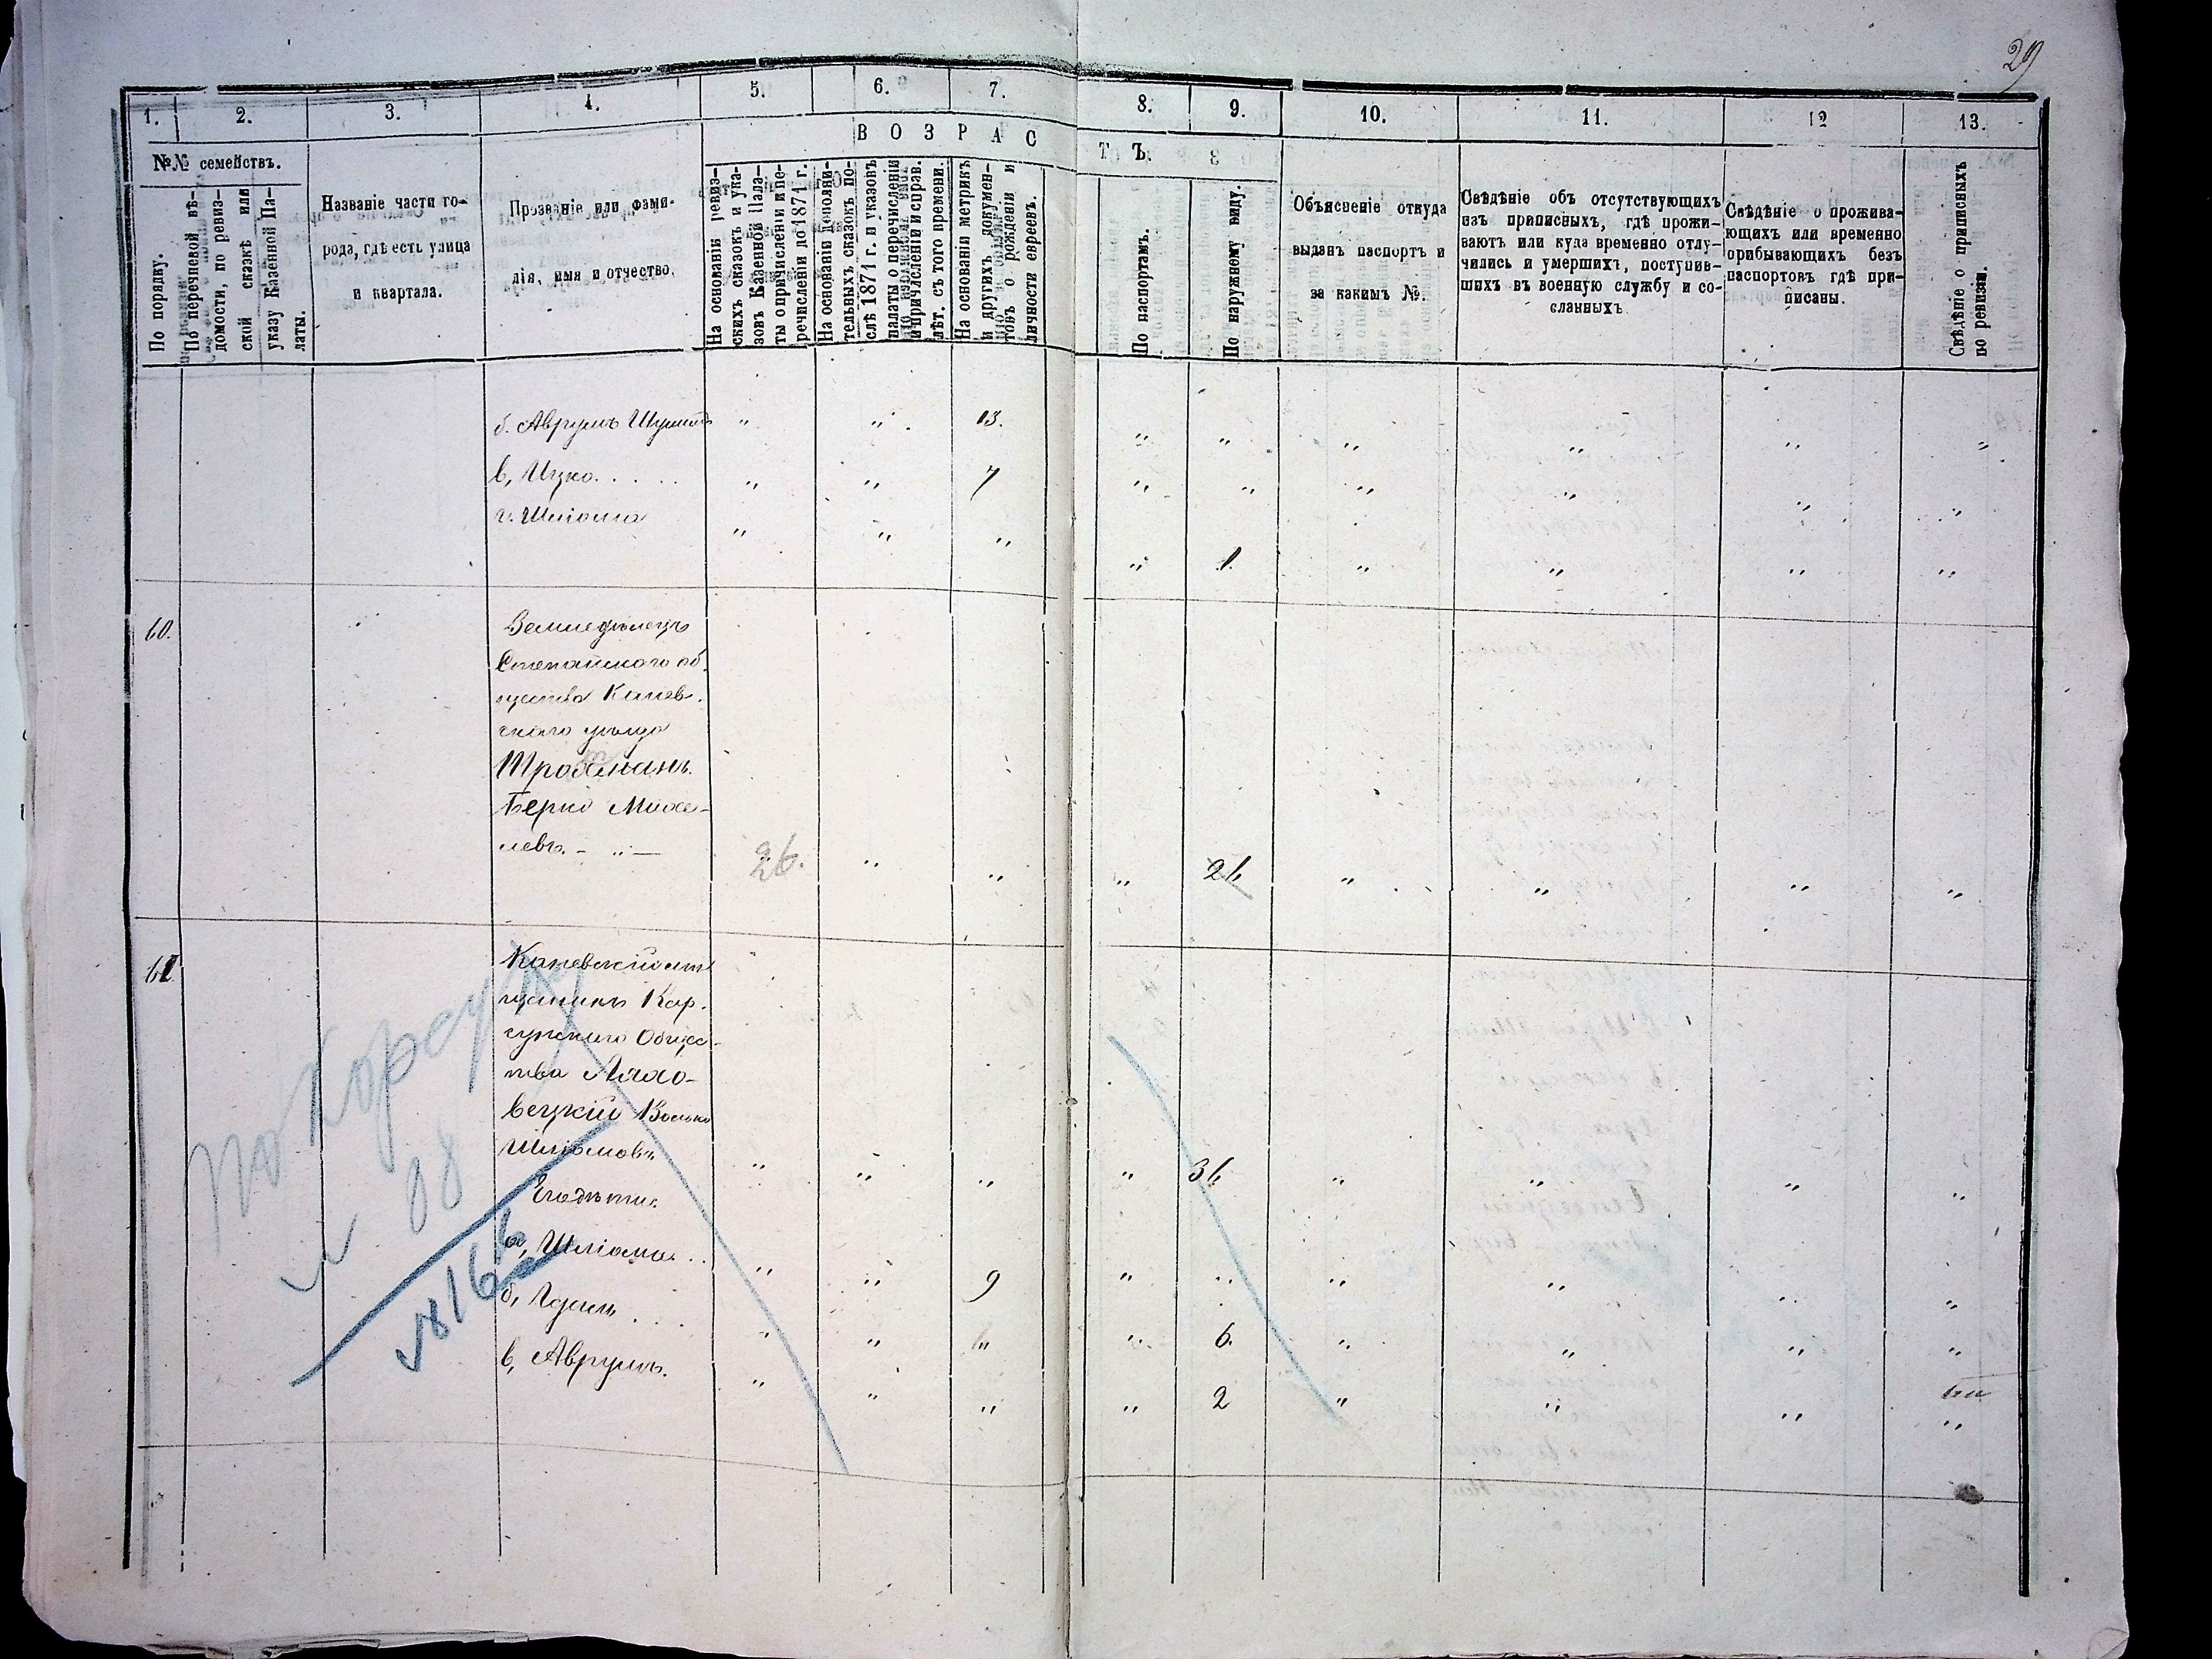 29
1. 2. 3. 4. 5. 6. 7. 8. 9. 10. 11. 12 13.
№№ семействъ.
В О З Р А С Т Ъ.
По порядку.
По перечневой вѣ-
домости, по ревиз-
ской сказкѣ или
указу Казенной Па-
латы.
Названіе части го-
рода, гдѣ есть улица
и квартала.
Прозваніе или фами-
лія, имя и отчество.
На основаніи ревиз-
скихъ сказокъ и ука-
зовъ Казенной Пала-
ты о причисленіи и пе-
речисленіи до 1871 г.
На основаніи дополни-
тельныхъ сказокъ по-
слѣ 1871 г. и указовъ
палаты о перечисленіи
и причисленіи и справ.
лѣт. съ того времени.
На основаніи метрикъ
и другихъ докумен-
товъ о рожденіи и
личности евреевъ.
По паспортамъ.
По наружному виду.
Объясненіе откуда
выданъ паспортъ и
за какимъ №.
Свѣдѣніе объ отсутствующихъ
изъ приписныхъ, гдѣ прожи-
ваютъ или куда временно отлу-
чились и умершихъ, поступив-
шихъ въ военную службу и со-
сланныхъ.
Свѣдѣніе о прожива-
ющихъ или временно
прибывающихъ безъ
паспортовъ гдѣ при-
писаны.
Свѣдѣніе о приписныхъ
по ревизіи.
б. Аврумъ " " 13. " " " " " "
в, Ицко..... " " 7 " " " " " "
г. Шліома " " " " 1. " " " "
60. Земледѣлецъ
общества Канев-
скаго уѣзда
Бѣрко Михе-
левъ. - " - 26. " " " 26 " " " "
61 Каневскій
Кор-
сунскаго Обще-
ства Ляхо-
вецкій Волько
Шліомовъ " " " " 36 " " " "
Его дѣти:
а, Шліома.. " " 9 " " " " " "
б, ... " " " " 6. " " " "
в, Аврумъ. " " " " 2 " " " "
по Корсуну
08
816